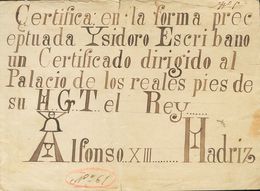 Certifica: en la forma prec
eptuada Ysidoro Escribano
un Certificado dirigido al
Palacio de los reales pies de
su H.G.T. el Rey......
Alfonso XIII......... Madriz